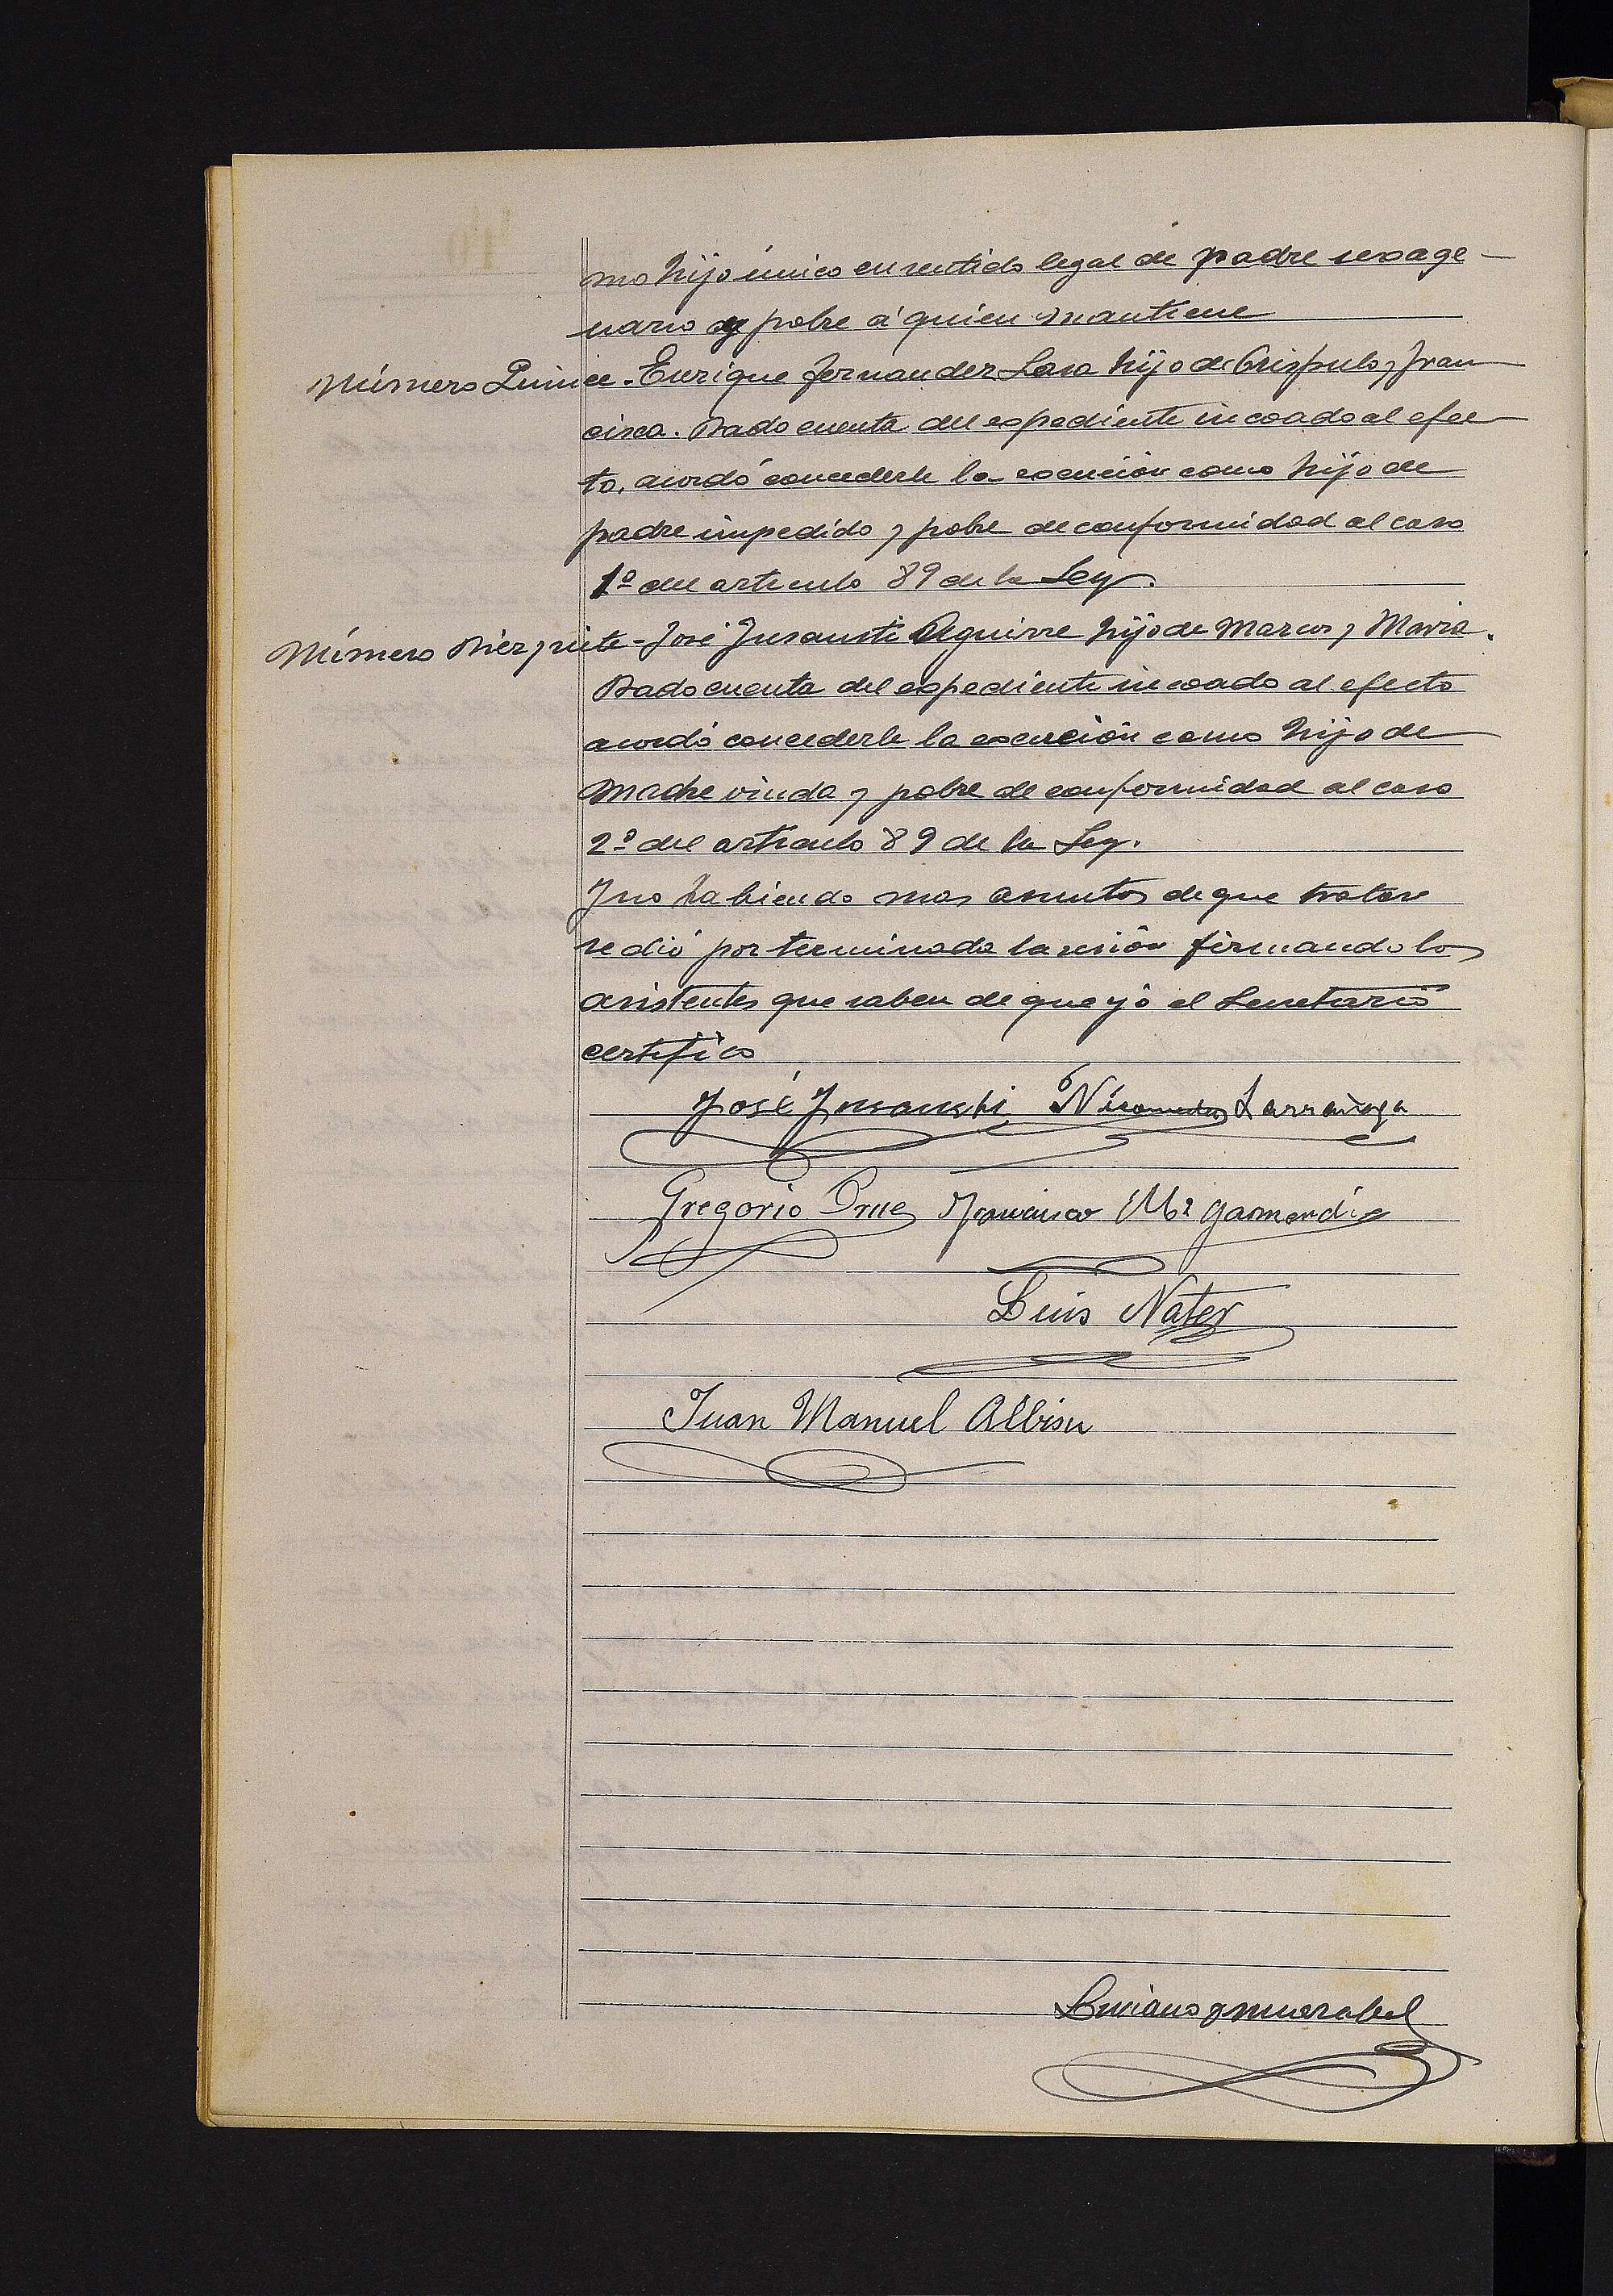 mo hijo único en sentido legal de padre sexage-
nario y pobre á quien mantiene
Número Quince - Enrique Fernandez Lasa hijo de Crispulo y Fran
cisca. Dado cuenta del expediente incoado al efec
to, acordó concederle la exención como hijo de
padre impedido y pobre de conformidad al caso
1º del articulo 89 de la Ley.
Número Diez y siete - José Insausti Aguirre hijo de Marcos y Maria.
Dado cuenta del expediente incoado al efecto
acordó concederle la exención como hijo de
Madre viuda y pobre de conformidad al caso
2º del articulo 89 de la Ley.
Y no habiendo mas asuntos de que tratar
se dió por terminada la sesión firmando los
asistentes que saben de que yó el Secretario
certifico
José Insausti Nicomedes Larrañaga
Gregorio Francisco Mª Garmendia
Luis Nater
Juan Manuel Albisu
Luciano